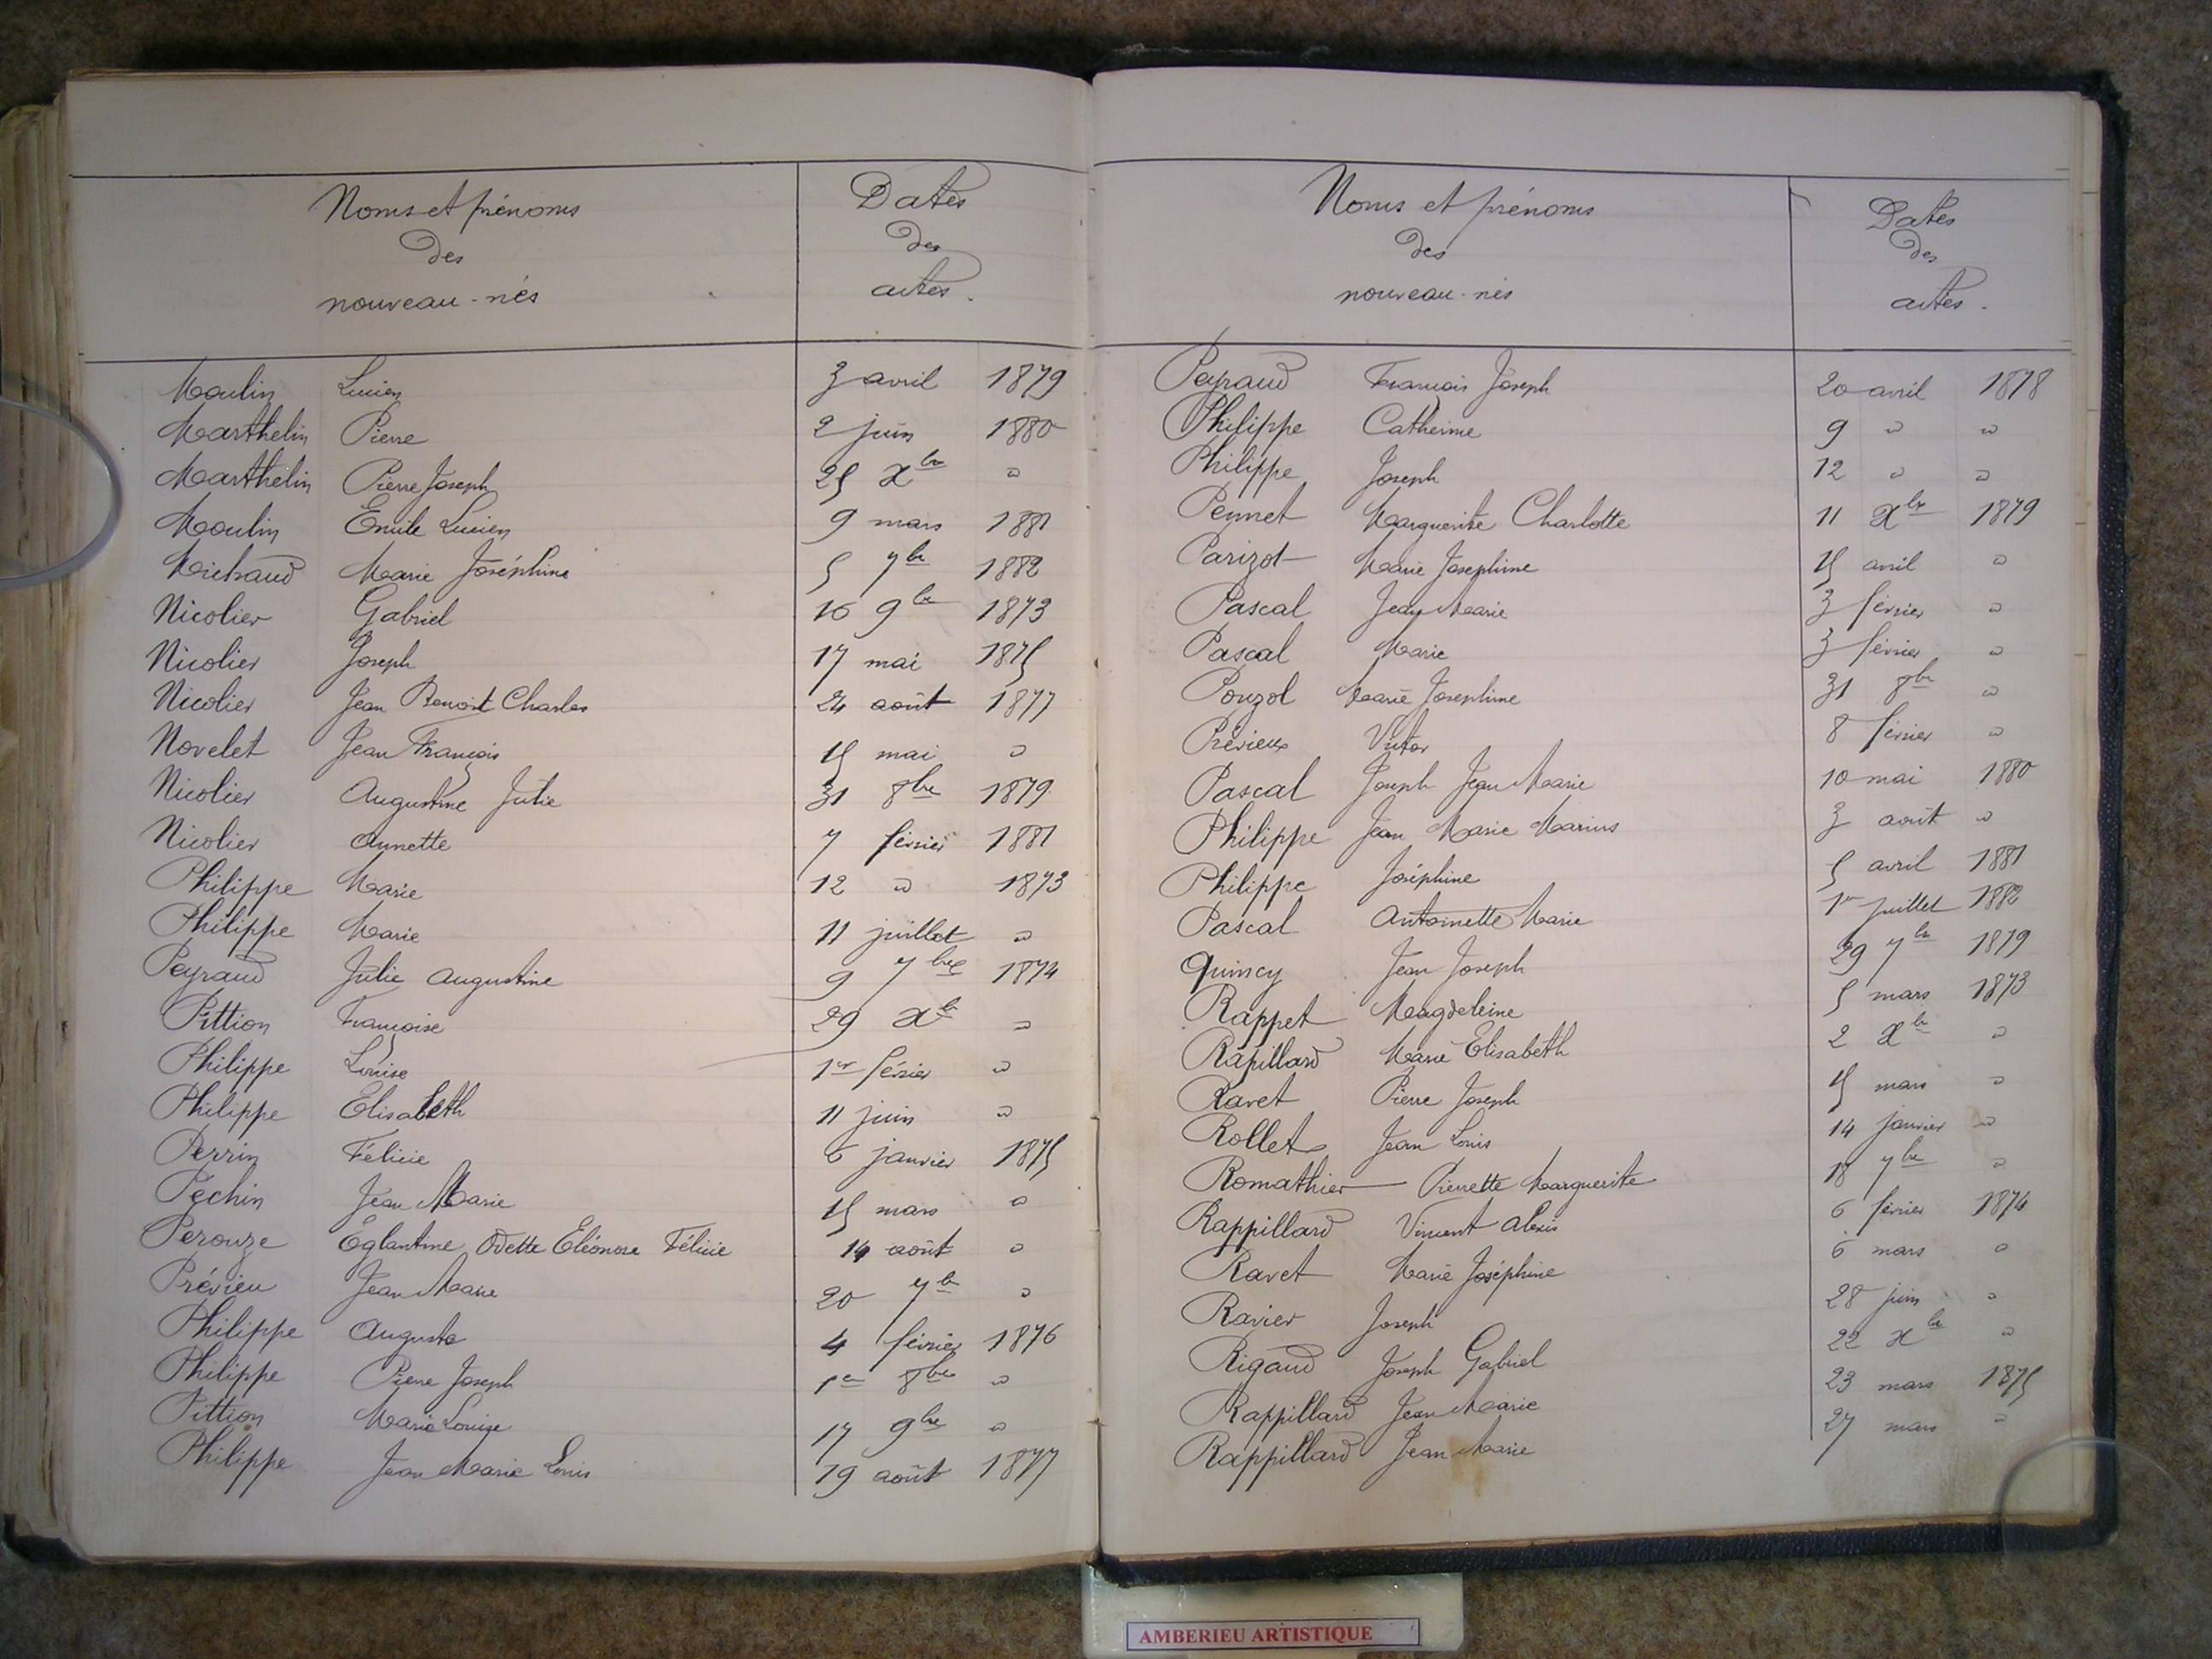 Noms et prénoms
des
nouveau-nés
Dates
des
actes.
Moulin Lucien 3 avril 1879
Marthelin Pierre 2 juin 1880
Marthelin Pierre Joseph 25 Xbre "
Moulin Emile Lucien 9 mars 1881
Michaud Marie Joséphine 5 7bre 1882
Nicolier Gabriel 16 9bre 1873
Nicolier Joseph 17 mai 1875
Nicolier Jean Benoit Charles 24 août 1877
Novelet Jean François 15 mai "
Nicolier Augustine Julie 31 8bre 1879
Nicolier Annette 7 février 1881
Philippe Marie 12 " 1873
Philippe Marie 11 juillet "
Peyraud Julie Augustine 9 7bre 1874
Pittion Françoise 29 Xbre "
Philippe Louise 1er février "
Philippe Elisabeth 11 juin "
Perrin Félicie 6 janvier 1875
Pechin Jean Marie 15 mars "
Perouze Églantine Odette Eléonore Félicie 14 août "
Prévieu Jean Marie 20 7bre "
Philippe Auguste 4 février 1876
Philippe Pierre Joseph 1er 8bre "
Pittion Marie Louise 17 9bre "
Philippe Jean Marie Louis 19 août 1877
Noms et prénoms
des
nouveau-nés
Dates
des
actes.
Peyraud François Joseph 20 avril 1878
Philippe Catherine 9 " "
Philippe Joseph 12 " "
Pennet Marguerite Charlotte 11 Xbre 1879
Parizot Marie Josephine 15 avril "
Pascal Jean Marie 3 février "
Pascal Marie 3 février "
Pouzol Marie Josephine 31 8bre "
Prévieux Victor 8 février "
Pascal Joseph Jean Marie 10 mai 1880
Philippe Jean Marie Marius 3 août "
Philippe Joséphine 5 avril 1881
Pascal Antoinette Marie 1er juillet 1882
Quincy Jean Joseph 29 7bre 1879
Rappet Magdeleine 5 mars 1873
Rapillard Marie Elisabeth 2 Xbre "
Ravet Pierre Joseph 15 mars "
Rollet Jean Louis 14 janvier "
Romathier Pierrette Marguerite 18 7bre "
Rappillard Vincent Alexis 6 février 1874
Ravet Marie Joséphine 6 mars "
Ravier Joseph 28 juin "
Rigaud Joseph Gabriel 22 Xbre "
Rappillard Jean Marie 23 mars 1875
Rappillard Jean Marie 27 mars "
AMBERIEU ARTISTIQUE